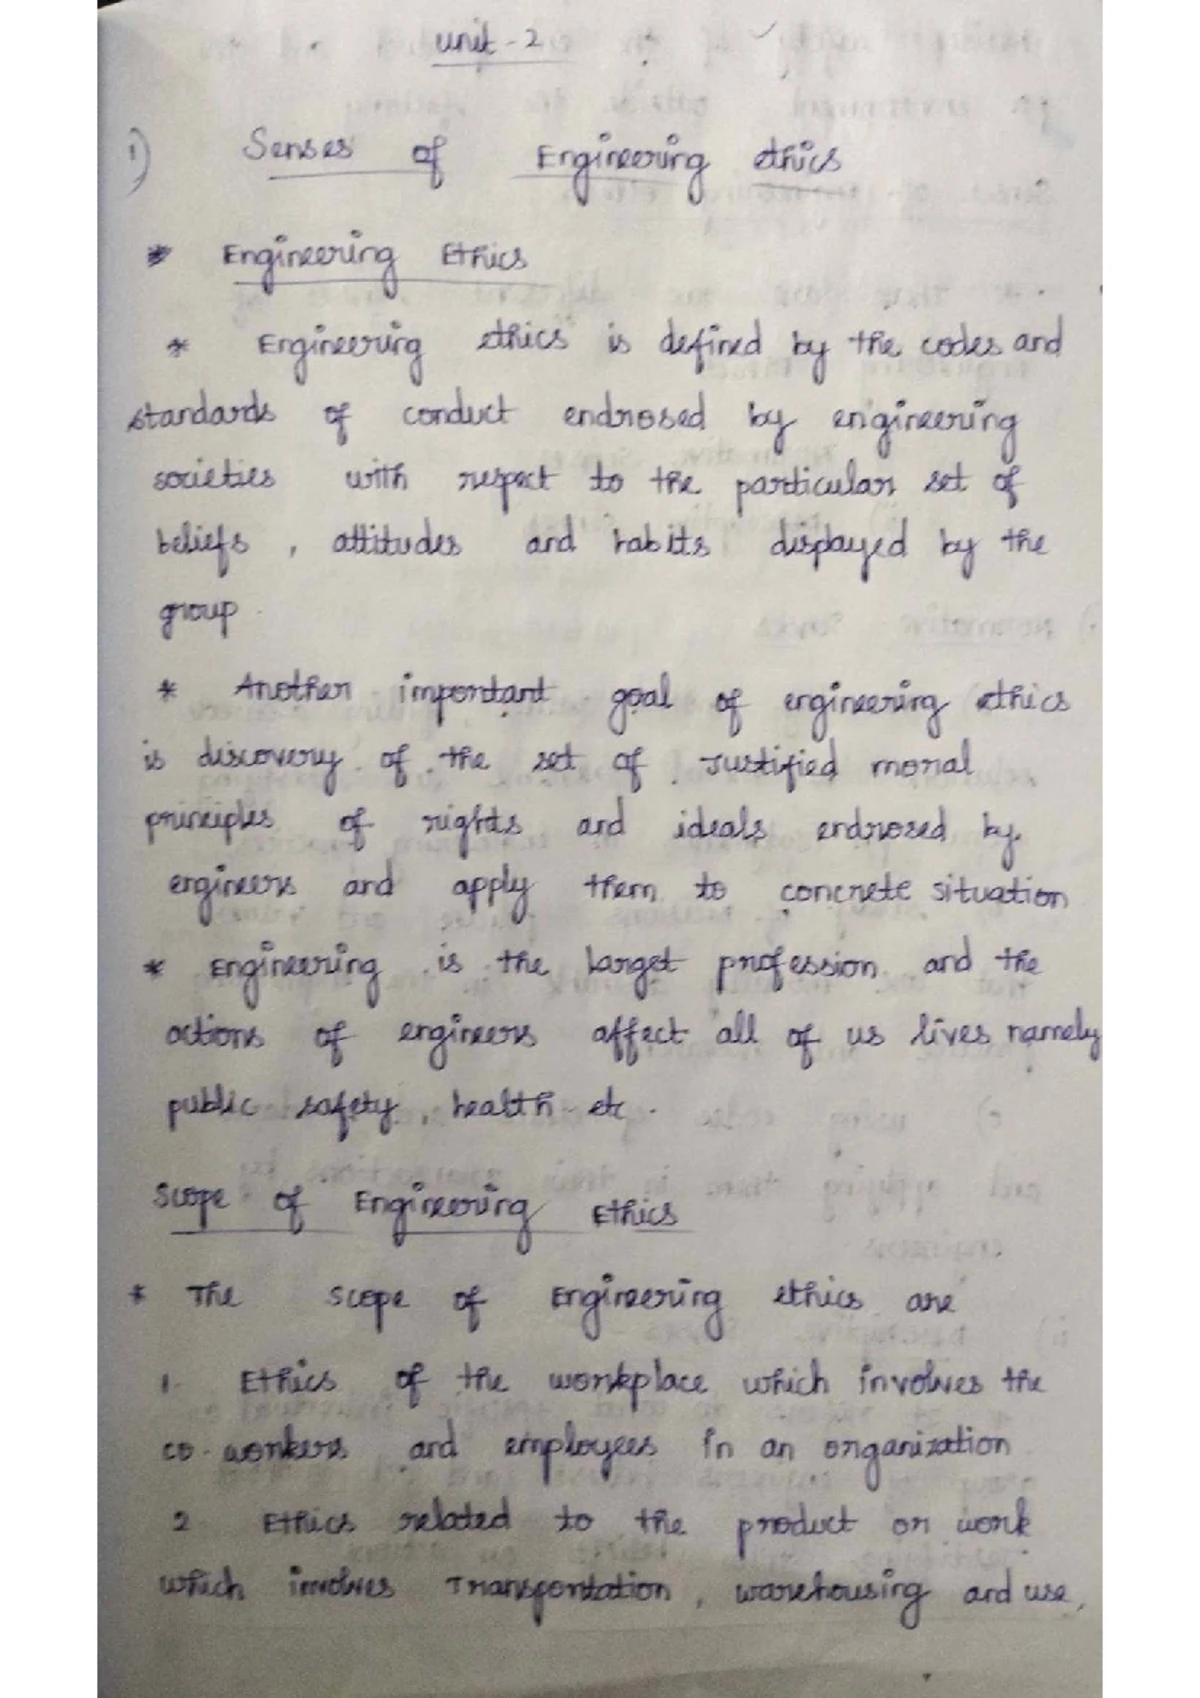 unit - 2
1) Senses of Engineering ethics
* Engineering Ethics
* Engineering ethics is defined by the codes and
standards of conduct endrosed by engineering
societies with respect to the particular set of
beliefs , attitudes and habits displayed by the
group .
* Another important goal of engineering ethics
is discovery of the set of Justified moral
principles of rights and ideals endrosed by
engineers and apply them to concrete situation
* Engineering is the larget profession and the
actions of engineers affect all of us lives namely
public safety, health etc .
Scope of Engineering Ethics
* The scope of Engineering ethics are
1. Ethics of the workplace which involves the
co-workers and employees in an organization
2 Ethics related to the product or work
which involves Transportation , warehousing and use,